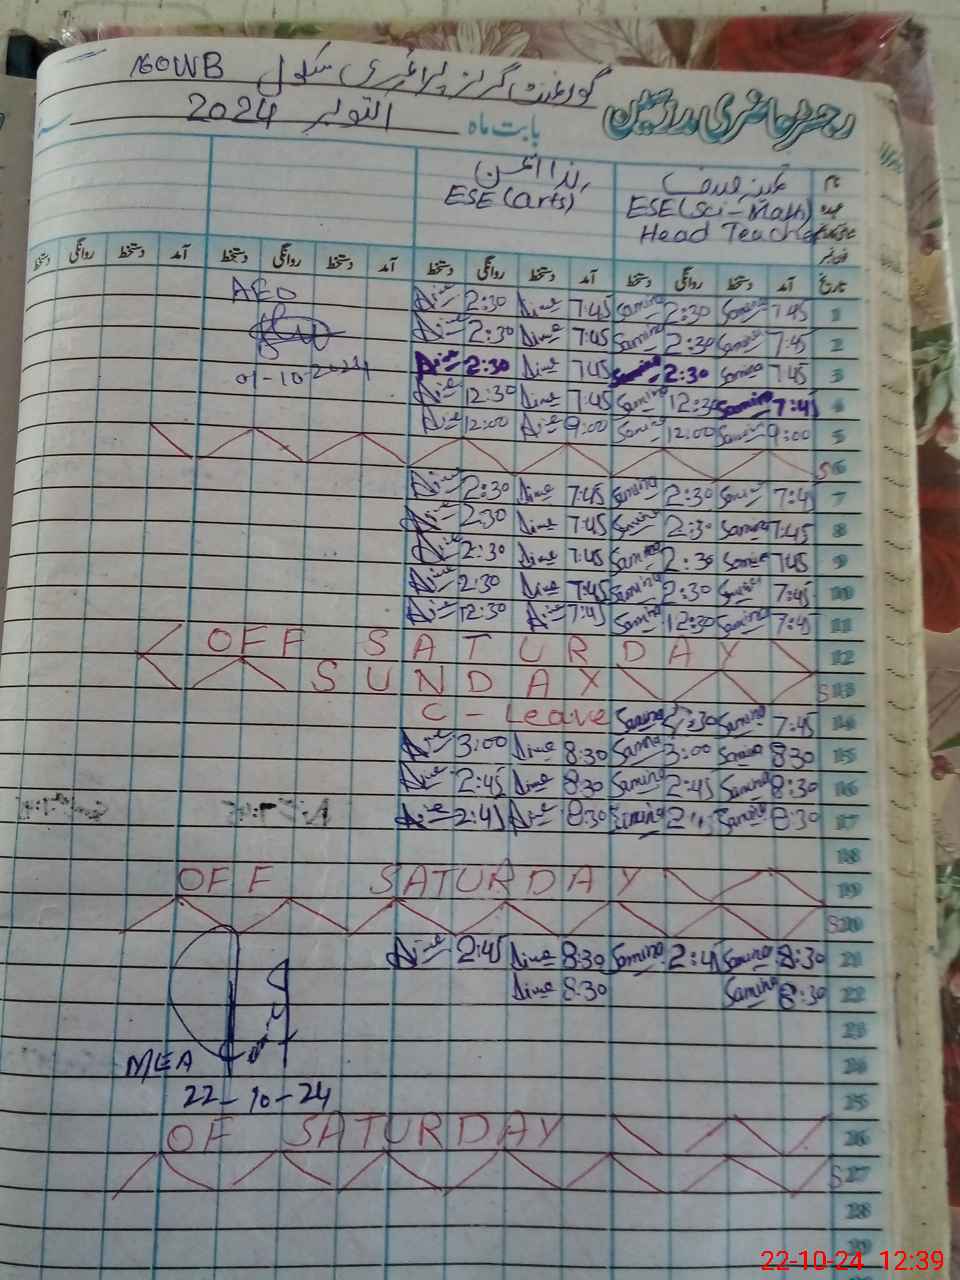 گورنمنٹ گرلز پرائمری سکول 160WB
رجسٹر حاضری مدرسین
بابت ماہ اکتوبر 2024
نام
ESE (Sci-Math) ESE (arts)
Head Teacher
تاریخ آمد دستخط روانگی دستخط آمد دستخط روانگی دستخط آمد دستخط روانگی دستخط آمد دستخط روانگی دستخط
AEO
01-10-2024
1 7:45 Samina 2:30 Samina 7:45 2:30
2 7:45 Samina 2:30 Samina 7:45 2:30
3 7:45 Samina 2:30 Samina 7:45 2:30
4 7:45 Samina 12:30 Samina 7:45 12:30
5 9:00 Samina 12:00 Samina 9:00 12:00
S 6
7 7:45 Samina 2:30 Samina 7:45 2:30
8 7:45 Samina 2:30 Samina 7:45 2:30
9 7:45 Samina 2:30 Samina 7:45 2:30
10 7:45 Samina 2:30 Samina 7:45 2:30
11 7:45 Samina 12:30 Samina 7:45 12:30
12 OFF SATURDAY
S 13 SUNDAY
14 7:45 Samina Samina C-Leave
15 8:30 Samina 3:00 Samina 8:30 3:00
16 8:30 Samina 2:45 Samina 8:30 2:45
17 8:30 Samina Samina 8:30 2:45
18
19 OFF SATURDAY
S 20
21 8:30 Samina 2:45 Samina 8:30 2:45
22 8:30 Samina 8:30
23
24
MEA
25
22-10-24
26 OF SATURDAY
S 27
28
29
22-10-24 12:39